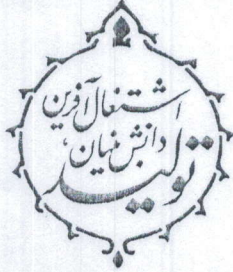 تولید
دانش‌بنیان،
اشتغال‌آفرین